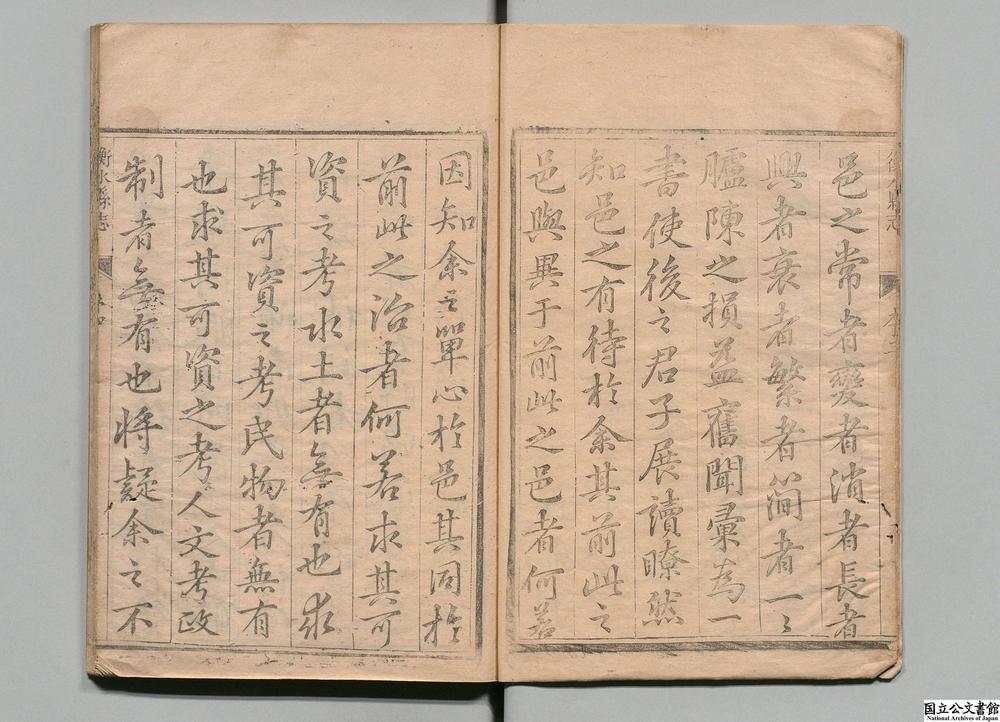 邑之常者變者消者長者
興者衰者繁者簡者一々
臚陳之損益舊聞彙為一
書使後之君子展讀瞭然
知邑之有待於余其前此之
邑與異于前此之邑者何若
因知余之單心於邑其同於
前此之治者何若求其可
資之考水土者無有也求
其可資之考民物者無有
也求其可資之考人文考政
制者無有也將疑余之不
衡水縣志
国立公文書館
National Archives of Japan